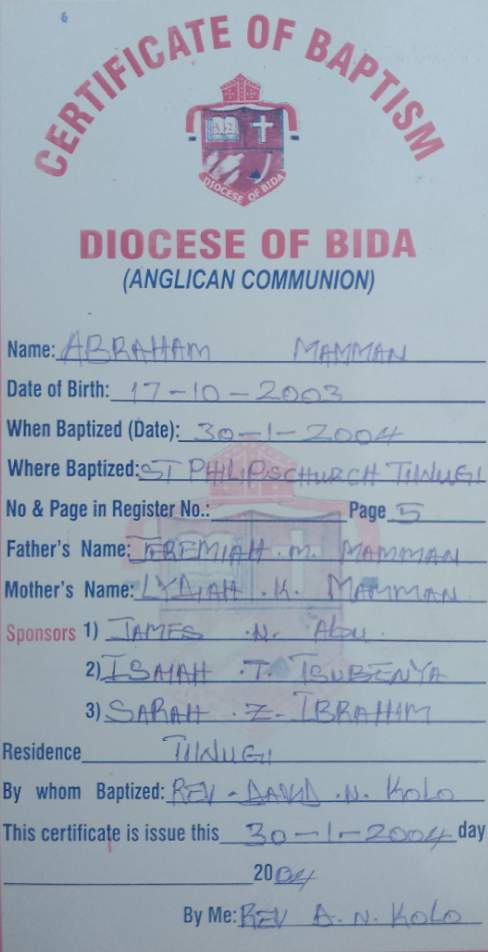 CERTIFICATE OF BAPTISM
DIOCESE OF BIDA
DIOCESE OF BIDA
(ANGLICAN COMMUNION)
Name: ABRAHAM MAMMAN
Date of Birth: 17-10-2003
When Baptized (Date): 30-1-2004
Where Baptized: ST PHILIPSCHURCH
No & Page in Register No.: Page 5
Father's Name: JEREMIAH .M. MAMMAN
Mother's Name: LYDIAH .K. MAMMAN
Sponsors 1) JAMES .N. ABU.
2) ISAIAH .T. TSUBENYA
3) SARAH .Z. IBRAHIM
Residence
By whom Baptized: REV. DAVID .N. KOLO
This certificate is issue this 30-1-2004 day
2004
By Me: REV D.N. KOLO